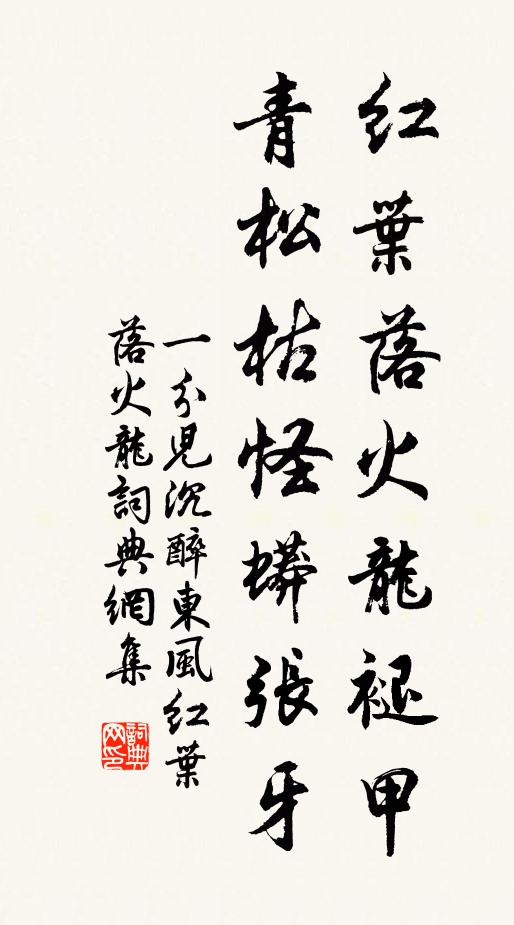 紅葉落火龍褪甲
青松枯怪蟒張牙
一分兒沉醉東風紅葉
落火龍詞典網集
詞典
网印